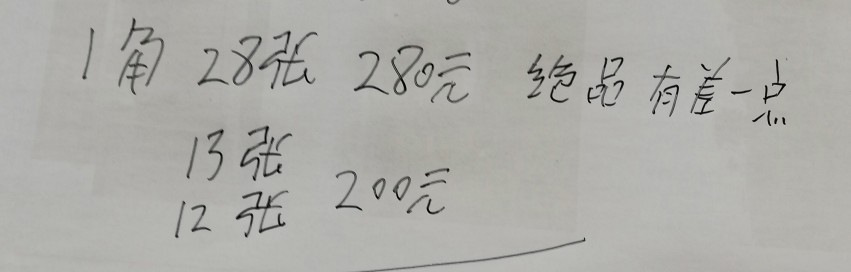 1角 28张 280元 绝品 有差一点
13张
12张 200元